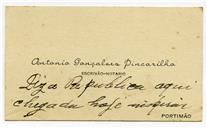 Antonio Gonçalves Pincarilho
ESCRIVÃO-NOTARIO
Diga Republica aqui
chegada hoje
PORTIMÃO